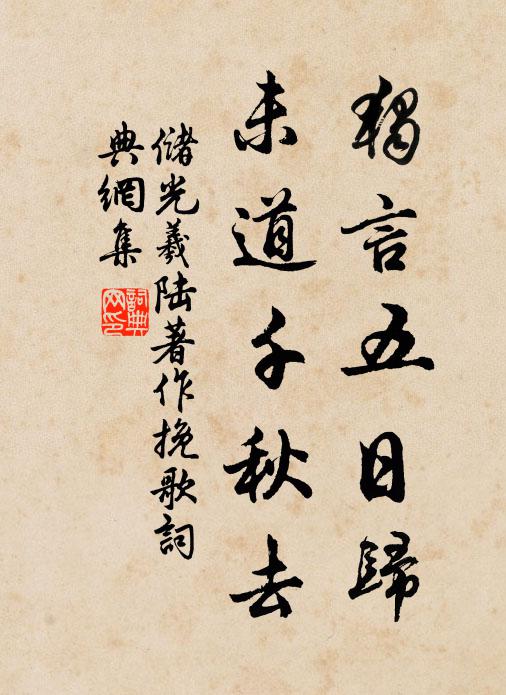 獨言五日歸
未道千秋去
儲光羲陸著作挽歌詞
典網集
詞典
网印